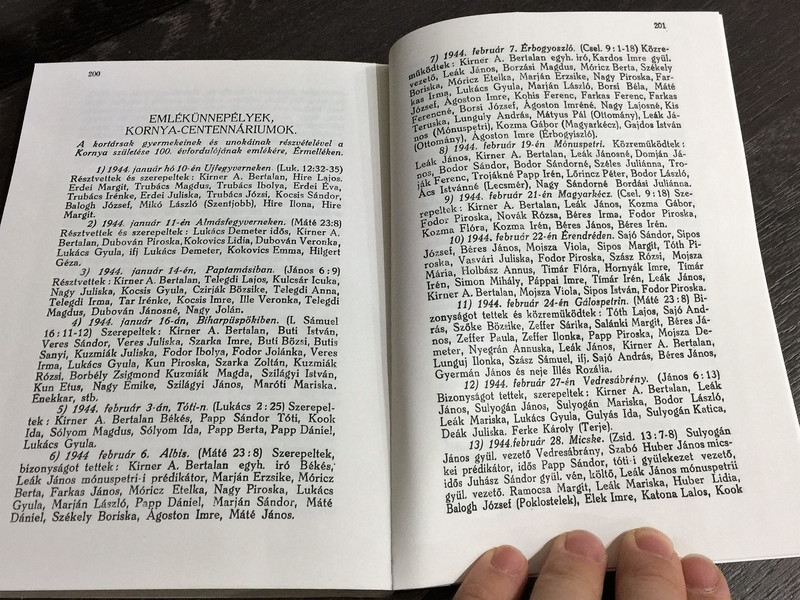 200
EMLÉKÜNNEPÉLYEK,
KORNYA-CENTENNÁRIUMOK.
A kortársak gyermekeinek és unokáinak részvételével a
Kornya születése 100. évfordulójának emlékére, Érmelléken.
1) 1944. január hó 10-én Ujfegyverneken. (Luk. 12:32-35)
Résztvettek és szerepeltek: Kirner A. Bertalan, Hire Lajos.
Erdei Margit, Trubács Magdus, Trubács Ibolya, Erdei Éva,
Trubács Irénke, Erdei Juliska, Trubács Józsi, Kocsis Sándor,
Balogh József, Mikó László (Szentjobb), Hire Ilona, Hire
Margit.
2) 1944. január 11-én Almásfegyverneken. (Máté 23:8)
Résztvettek és szerepeltek: Lukács Demeter idős, Kirner A.
Bertalan, Dubován Piroska, Kokovics Lidia, Dubován Veronka,
Lukács Gyula, ifj Lukács Demeter, Kokovics Emma, Hilgert
Géza.
3) 1944. január 14-én, Paptamásiban. (János 6:9)
Résztvettek: Kirner A. Bertalan, Telegdi Lajos, Kulcsár Icuka,
Nagy Juliska, Kocsis Gyula, Czirják Bözsike, Telegdi Anna,
Telegdi Irma, Tar Irénke, Kocsis Imre, Ille Veronka, Telegdi
Magdus, Dubován Jánosné, Nagy Jolán.
4) 1944. január 16-án, Biharpüspökiben. (I. Sámuel
16:11-12) Szerepeltek: Kirner A. Bertalan, Buti István,
Veres Sándor, Veres Juliska, Szarka Imre, Buti Bözsi, Butis
Sanyi, Kuzmiák Juliska, Fodor Ibolya, Fodor Jolánka, Veres
Irma, Lukács Gyula, Kun Piroska, Szarka Zoltán, Kuzmiák
Rózsi, Borbély Zsigmond Kuzmiák Magda, Szilágyi István,
Kun Etus, Nagy Emike, Szilágyi János, Maróti Mariska.
Énekkar, stb.
5) 1944. február 3-án, Tóti-n. (Lukács 2:25) Szerepel-
tek: Kirner A. Bertalan Békés, Papp Sándor Tóti, Kook
Ida, Sólyom Magdus, Sólyom Ida, Papp Berta, Papp Dániel,
Lukács Gyula.
6) 1944 február 6. Albis. (Máté 23:8) Szerepeltek,
bizonyságot tettek: Kirner A. Bertalan egyh. iró Békés,
Leák János mónuspetri-i prédikátor, Marján Erzsike, Móricz
Berta, Farkas János, Móricz Etelka, Nagy Piroska, Lukács
Gyula, Marján László, Papp Dániel, Marján Sándor, Máté
Dániel, Székely Boriska, Ágoston Imre, Máté János.
201
7) 1944. február 7. Érbogyoszló. (Csel. 9:1-18) Közre-
működtek: Kirner A. Bertalan egyh. iró, Kardos Imre gyül.
vezető, Leák János, Borzási Magdus, Móricz Berta, Székely
Boriska, Móricz Etelka, Marján Erzsike, Nagy Piroska, Far-
kas Irma, Lukács Gyula, Marján László, Borsi Béla, Máté
József, Ágoston Imre, Kohis Ferenc, Farkas Ferenc, Farkas
Ferencné, Borsi József, Ágoston Imréné, Nagy Lajosné, Kis
Teruska, Lunguly András, Mátyus Pál (Ottomány), Leák Já-
nos (Mónuspetri), Kozma Gábor (Magyarkéc), Gajdos István
(Ottomány), Ágoston Imre (Érbogyiszló).
8) 1944. február 19-én Mónuspetri. Közreműködtek:
Leák János, Kirner A. Bertalan, Leák Jánosné, Domján Já-
nos, Bodor Sándor, Bodor Sándorné, Széles Julánna, Tro-
ják Ferenc, Trojákné Papp Irén, Lőrincz Péter, Bodor László,
Ács Istvánné (Lecsmér), Nagy Sándorné Bordási Juliánna.
9) 1944. február 21-én Magyarkéc. (Csel. 9:18) Sze-
repeltek: Kirner A. Bertalan, Leák János, Kozma Gábor,
Fodor Piroska, Novák Rózsa, Béres Irma, Fodor Piroska,
Kozma Flóra, Kozma Irén, Béres János, Béres Irén.
10) 1944. február 22-én Érendréden. Sajó Sándor, Sipos
József, Béres János, Mojsza Viola, Sipos Margit, Tóth Pi-
roska, Vasvári Juliska, Fodor Piroska, Szász Rózsi, Mojsza
Mária, Holbász Annus, Timár Flóra, Hornyák Imre, Timár
Irén, Simon Mihály, Páppai Imre, Timár Irén, Leák János,
Kirner A. Bertalan, Mojsza Viola, Sipos István, Fodor Piroska.
11) 1944. február 24-én Gálospetrin. (Máté 23:8) Bi-
zonyságot tettek és közreműködtek: Tóth Lajos, Sajó And-
rás, Szőke Bözsike, Zeffer Sárika, Salánki Margit, Béres Já-
nos, Zeffer Paula, Zeffer Ilonka, Papp Piroska, Mojsza De-
meter, Nyegrán Annuska, Leák János, Kirner A. Bertalan,
Lunguj Ilonka, Szász Sámuel, ifj. Sajó András, Béres János,
Gyermán János és neje Illés Rozália.
12) 1944. február 27-én Vedresábrény. (János 6:13)
Bizonyságot tettek, szerepeltek: Kirner A. Bertalan, Leák
János, Sulyogán János, Sulyogán Mariska, Bodor László,
Leák Mariska, Lukács Gyula, Gulyás Ida, Sulyogán Katica,
Deák Juliska. Ferke Károly (Terje).
13) 1944. február 28. Micske. (Zsid. 13:7-8) Sulyogán
János gyül. vezető Vedresábrány, Szabó Huber János mics-
kei prédikátor, idős Papp Sándor, tóti-i gyülekezet vezető,
idős Juhász Sándor gyül. vén, költő, Leák János mónuspetrii
gyül. vezető. Ramocsa Margit, Leák Mariska, Huber Lidia,
Balogh József (Poklostelek), Elek Imre, Katona Lalos, Kook